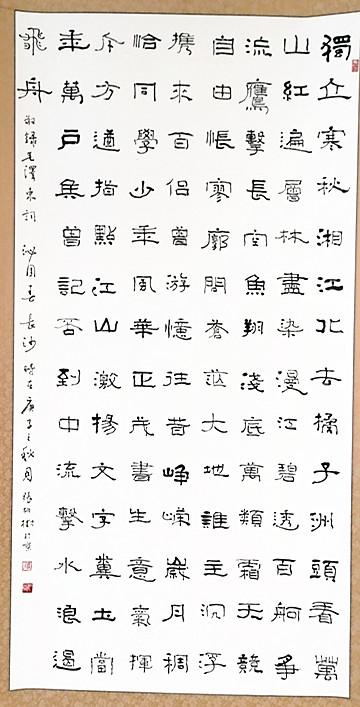 獨立寒秋湘江北去橘子洲頭看萬
山紅遍層林盡染漫江碧透百舸爭
流鷹擊長空魚翔淺底萬類霜天競
自由悵寥廓問蒼茫大地誰主沉浮
携來百侶曾游憶往昔崢嶸歲月稠
恰同學少年風華正茂書生意氣揮
斥方遒指點江山激揚文字糞土當
年萬戶侯曾記否到中流擊水浪遏
飛舟 錄毛澤東詞 沁园春 長沙 時在庚子之秋月